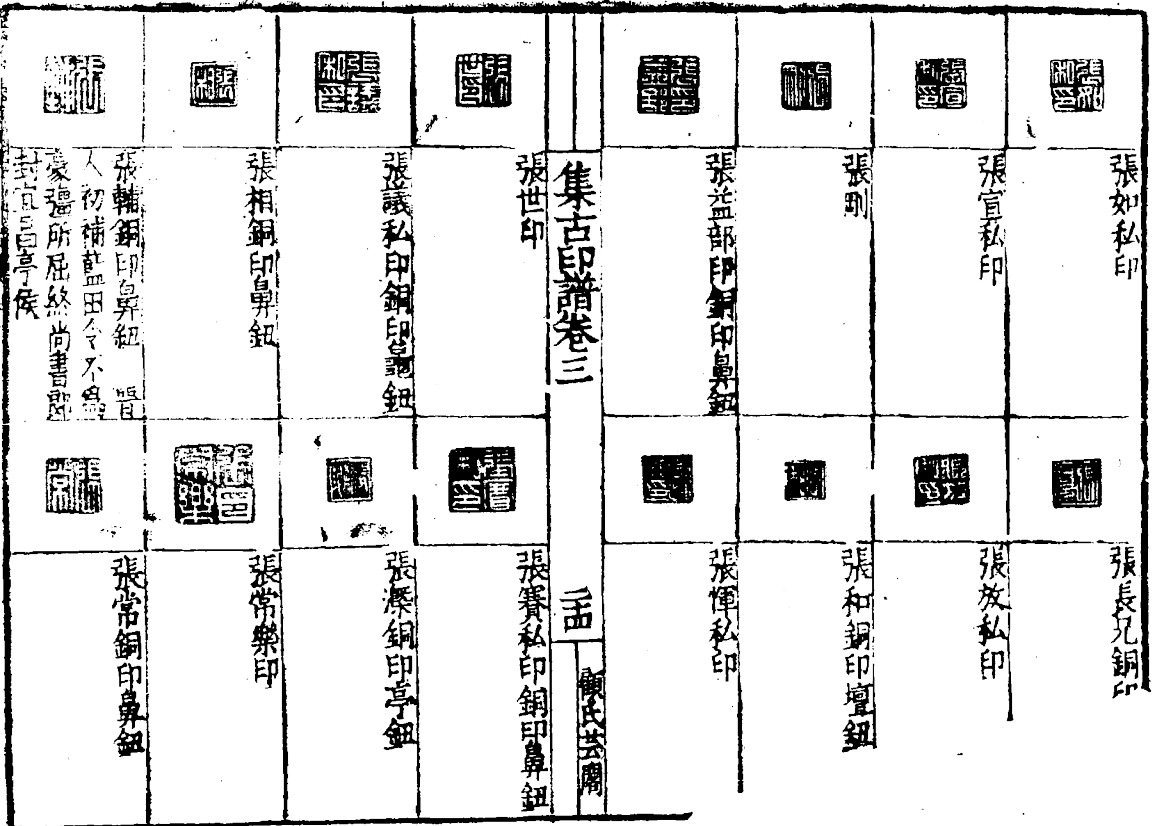 張如私印
張宣私印
張剛
張益部印銅印鼻鈕
張長兄銅印
張放私印
張和銅印壇鈕
張惲私印
集古印譜卷三
二十四
顧氏芸閣
張世印
張議私印銅印龜鈕
張相銅印鼻鈕
張輔銅印鼻鈕 晉
人初補藍田令不為
豪彊所屈終尚書郎
封宜昌亭侯
張賽私印銅印鼻鈕
張㵘銅印亭鈕
張常樂印
張常銅印鼻鈕